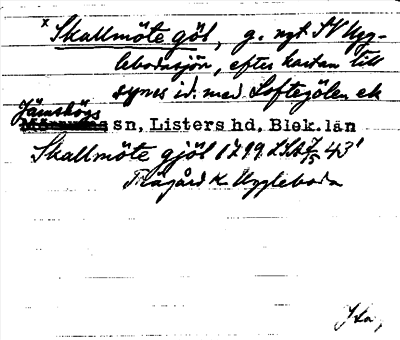 x Skallmöte göl, g. ngt SV Ugg-
lebodasjön, efter kartan till
synes id. med Loftegölen ek
Jämshögs
sn, Listers hd, Blek. län
Skallmöte gjöl 1799 LSA 43'
Trägård K Uggleboda